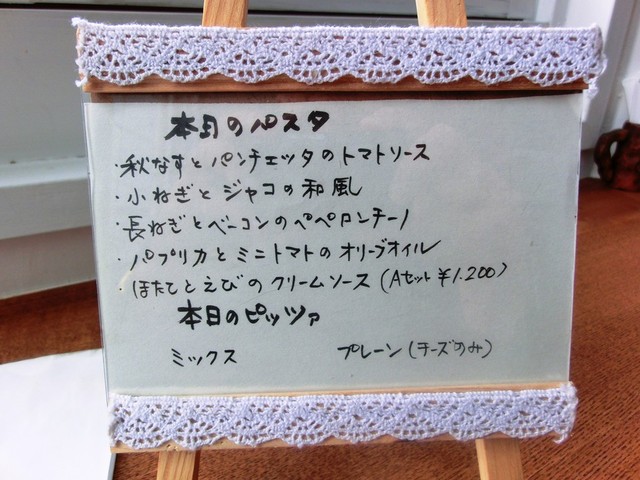 本日のパスタ
・秋なすとパンチェッタのトマトソース
・小ねぎとジャコの和風
・長ねぎとベーコンのペペロンチーノ
・パプリカとミニトマトのオリーブオイル
・ほたてとえびのクリームソース(Aセット ¥1.200)
本日のピッツァ
ミックス プレーン(チーズのみ)